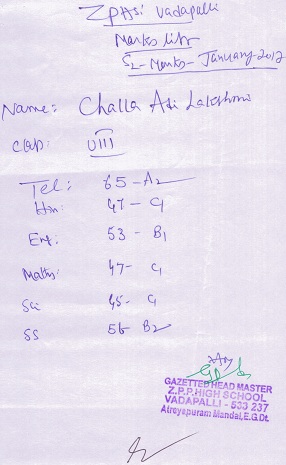 ZPHSi Vadapalli
Marks list
S2 - Marks - January - 2012
Name: Challa Adi Lakshmi
Class: VIII
Tel: 65 - A2
Hin: 47 - C1
Eng: 53 - B1
Maths: 47 - C1
Sci 45 - C1
SS 56 - B2
GAZETTED HEAD MASTER
Z.P.P. HIGH SCHOOL
VADAPALLI - 533 237
Atreyapuram Mandal, E.G.Dt.